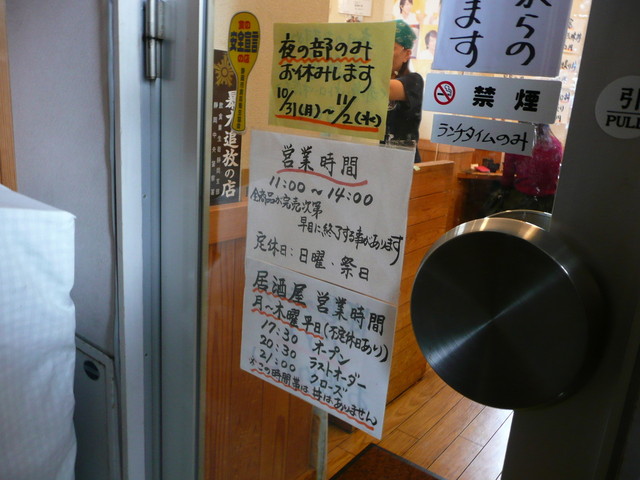 夜の部のみ
お休みします
10/31(月)～11/2(水)
営業時間
11:00～14:00
全商品が完売次第
早目に終了する事があります
定休日:日曜、祭日
居酒屋 営業時間
月～木曜平日(不定休日あり)
17:30 オープン
20:30 ラストオーダー
21:00 クローズ
※この時間帯は丼はありません
安全宣言
の店
暴力追放の店
からの
ます
禁煙
ランチタイムのみ
引
PULL